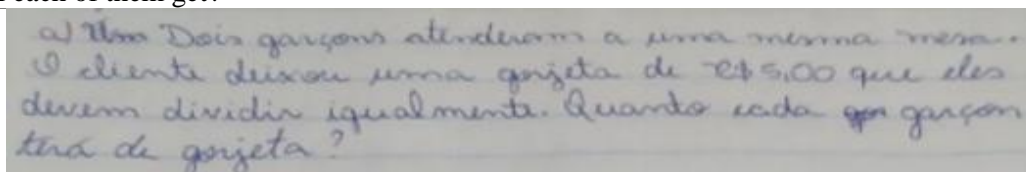 each of them get?
a) Um Dois garçons atenderam a uma mesma mesa.
O cliente deixou uma gorjeta de R$ 5,00 que eles
devem dividir igualmente. Quanto cada gar garçom
terá de gorjeta?